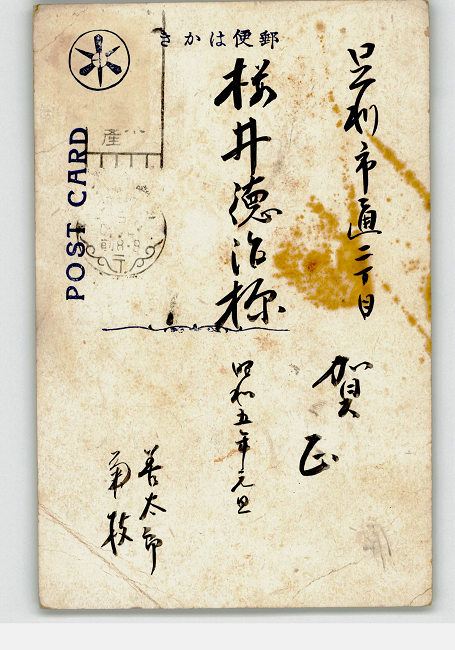 きかは便郵
POST CARD
足利市通二丁目
桜井徳治様
賀正
昭和五年元旦
善太郎